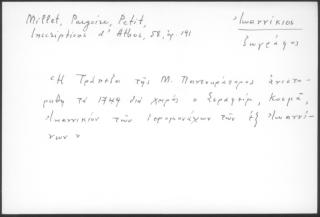 Millet, Pargoire, Petit,
Inscriptions d'Athos, 58, ἀρ. 191
Ἰωαννίκιος
ζωγράφος
«Ἡ Τράπεζα τῆς Μ. Παντοκράτορος ἀνιστο-
ρήθη τὸ 1749 διὰ χειρὸς Σεραφείμ, Κοσμᾶ,
Ἰωαννικίου τῶν ἱερομονάχων τῶν ἐξ Ἰωαννί-
νων»